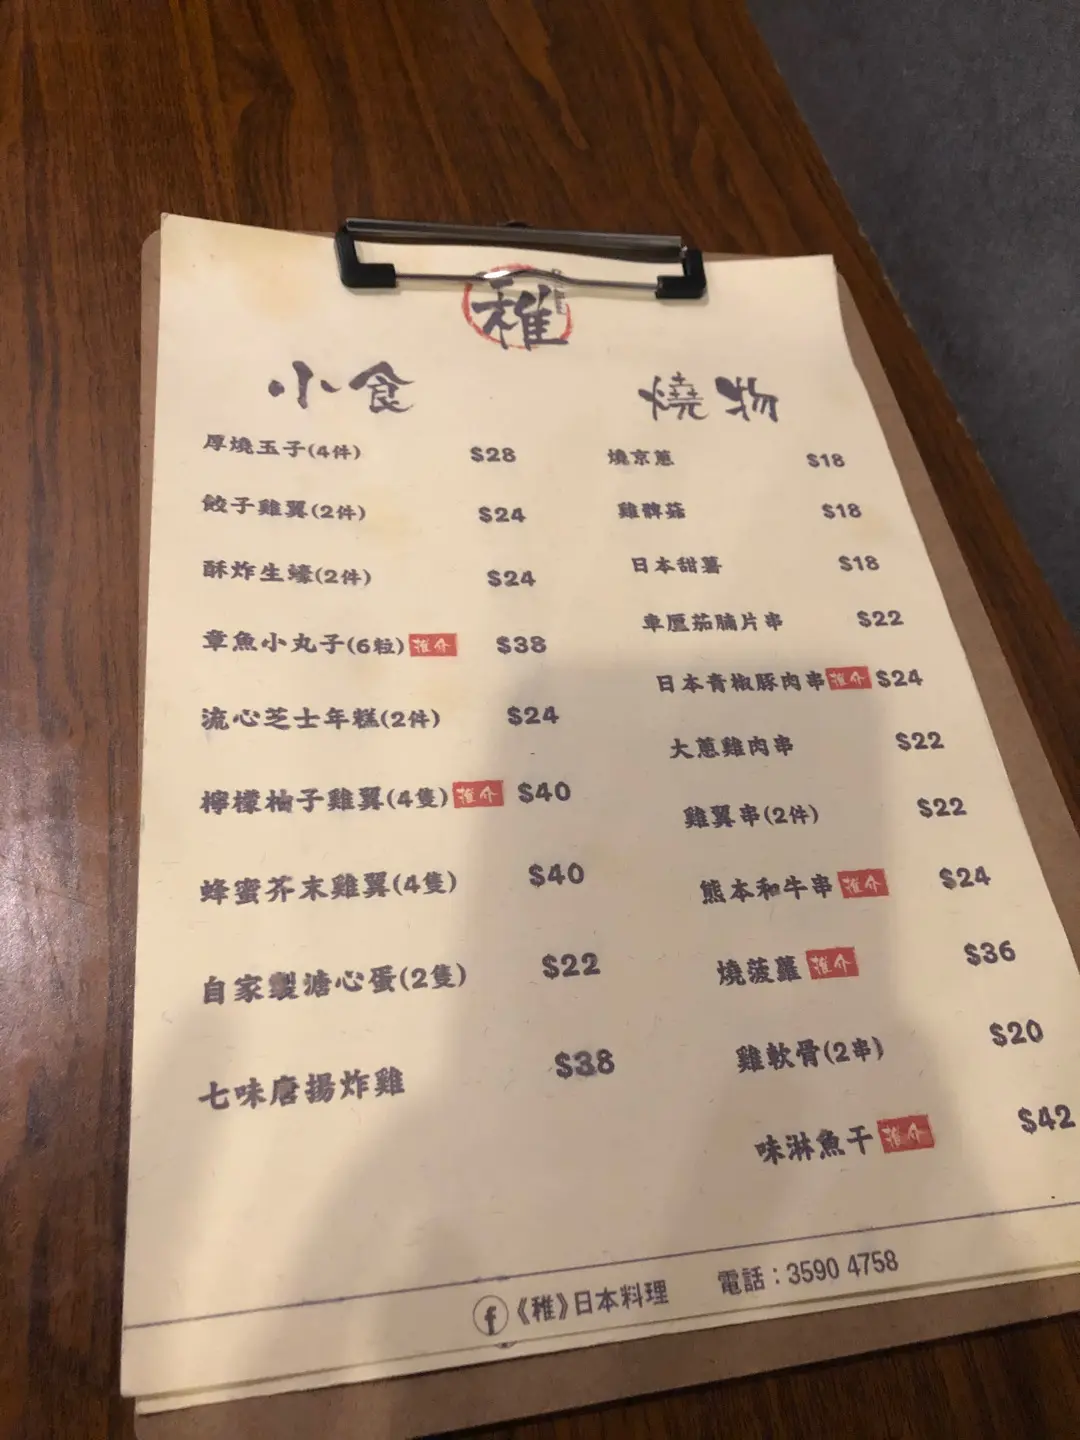 稚
小食
厚燒玉子(4件) $28
餃子雞翼(2件) $24
酥炸生蠔(2件) $24
章魚小丸子(6粒) 推介 $38
流心芝士年糕(2件) $24
檸檬柚子雞翼(4隻) 推介 $40
蜂蜜芥末雞翼(4隻) $40
自家製溏心蛋(2隻) $22
七味唐揚炸雞 $38
燒物
燒京蔥 $18
雞髀菇 $18
日本甜薯 $18
車厘茄腩片串 $22
日本青椒豚肉串 推介 $24
大蔥雞肉串 $22
雞翼串(2件) $22
熊本和牛串 推介 $24
燒菠蘿 推介 $36
雞軟骨(2串) $20
味淋魚干 推介 $42
f《稚》日本料理 電話：3590 4758